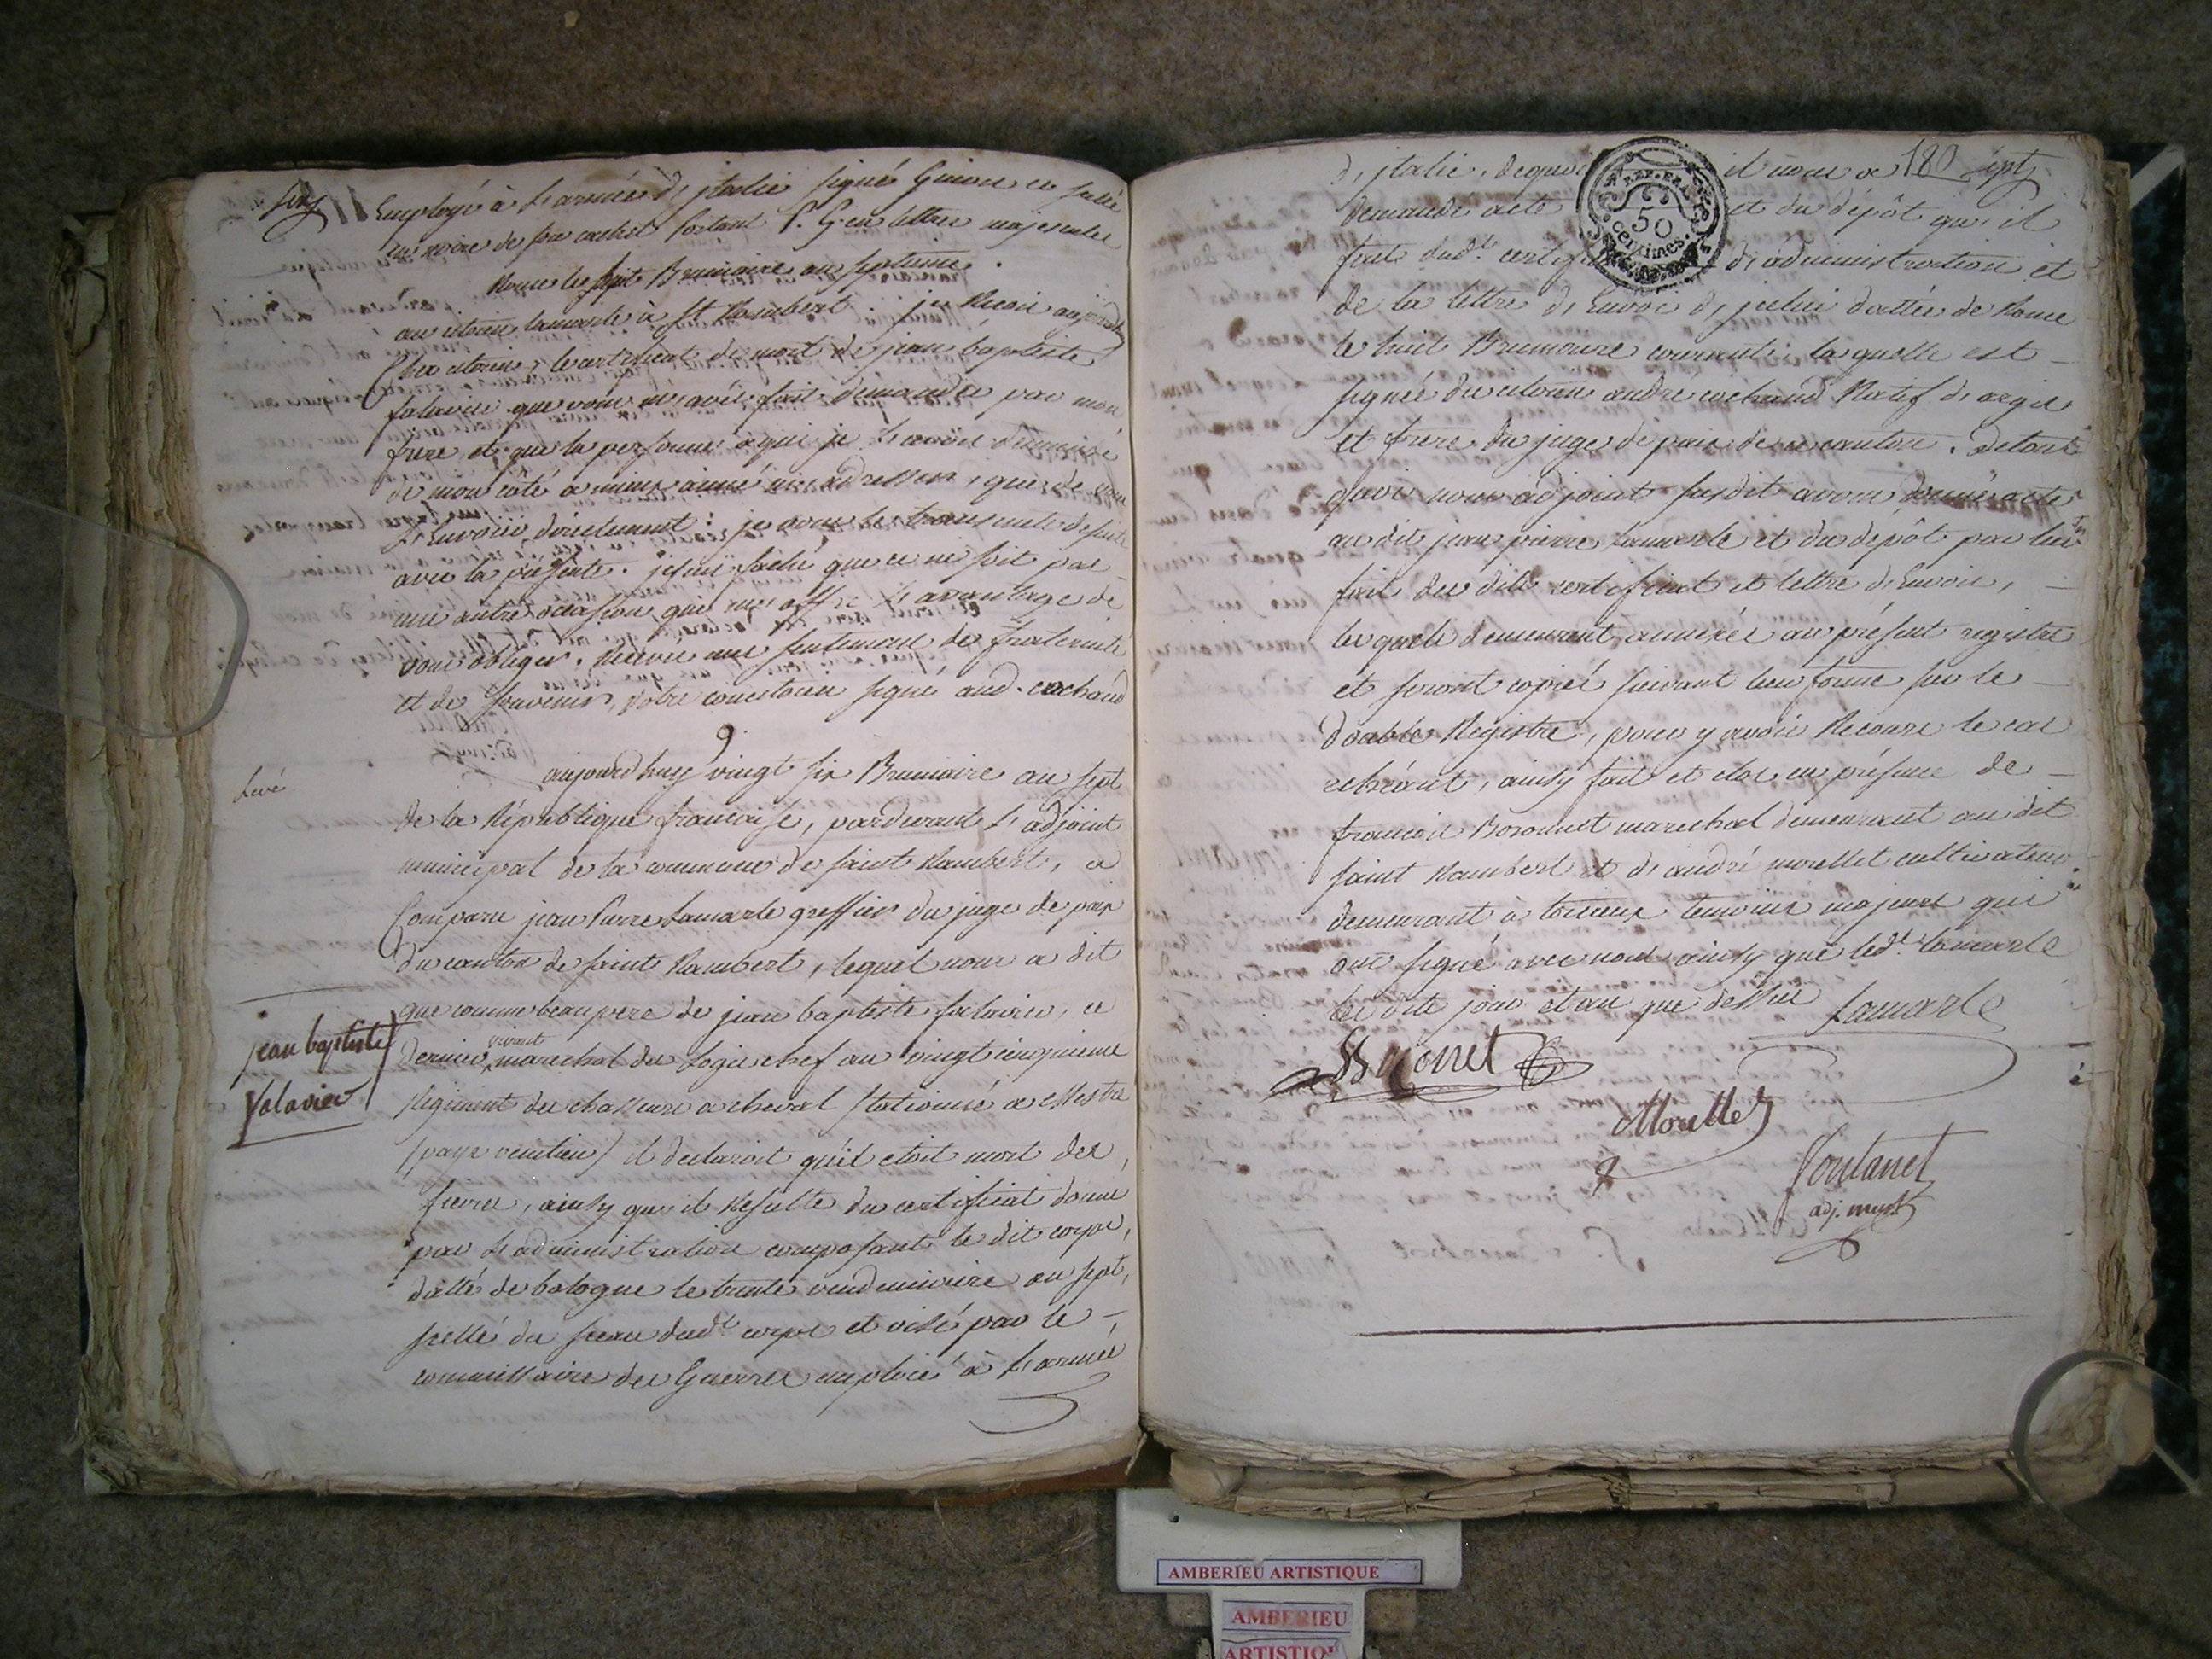 six
Employé à L'armée d'italie signé Guion en
noire de son cachet portant P. G. en lettres majuscules
Rome le huit Brumaire an septieme.
au citoien Lamarle à St Rambert. je Recoie aujourdhuy
Cher citoien, le certificat de mort de jean baptiste
falavier que vous m'avés fait demander par mon
frere et que la personne à qui je l'avois demandé
de mon coté a mieux aimé m'adresser, que de vous
L'Envoiïer directement: je vous le transmets
avec la présente. je suis faché que ce ne soit pas
une autre occassion qui me offre L'avantage de
vous obliger. Recevez mes sentimens de fraternité
et de souvenir, votre concitoien signé and. cochaud
9
Levé
aujourdhuy vingt six Brumaire an sept
de la République francaise, pardevant L'adjoint
municipal de la commune de saint Rambert, a
Comparu jean Pierre Lamarle greffier du juge de paix
du canton de saint Rambert, lequel nous a dit
que comme beau pere de jean baptiste falavier, ce
jean baptiste
falavier
dernier vivant marechal du Logis chef au vingt cinquieme
Régiment des chasseurs a cheval stationné a Mestre
(pays venitien) il declaroit qu'il etoit mort des
fievres, ainsy qu'il Résulte du certificat donné
par L'administration composant le dit corps,
datté de bologne le trente vendemiaire an sept,
scellé du sceau dudt corps et visé par le
commissaire des Guerres emploié à L'armée
180 sept
d'italie, dequoi il nous a
demandé acte et du dépôt qu'il
fait dudt. certificat d'administration et
de la lettre d'Envoi d'icelui dattée de Rome
le huit Brumaire courrant, laquelle est
signée du citoien andre cochaud Natif d'argis
et frere du juge de paix de ce canton. De tout
quoi nous adjoint susdit avons donné acte
au dit jean pierre Lamarle et du depôt par lui
fait des dits certificat et lettre d'Envoi,
lesquels demeurent annéxés au présent registre
et seront copiés suivant leur forme sur le
double Régistre, pour y avoir Recours le cas
echéant, ainsy fait et clos en présence de
francois Bozonnet marechal demeurant au dit
saint Rambert et d'andré morellet cultivateur
demeurant à torcieux temoins majeurs qui
ont signé avec nous ainsy que ledt. Lamarle
les dits jour et an que dessus Lamarle
Morellet
Fontanet
adj. mupl
REP. FRA.
50
centimes.
AMBERIEU ARTISTIQUE
AMBERIEU
ARTISTIQU